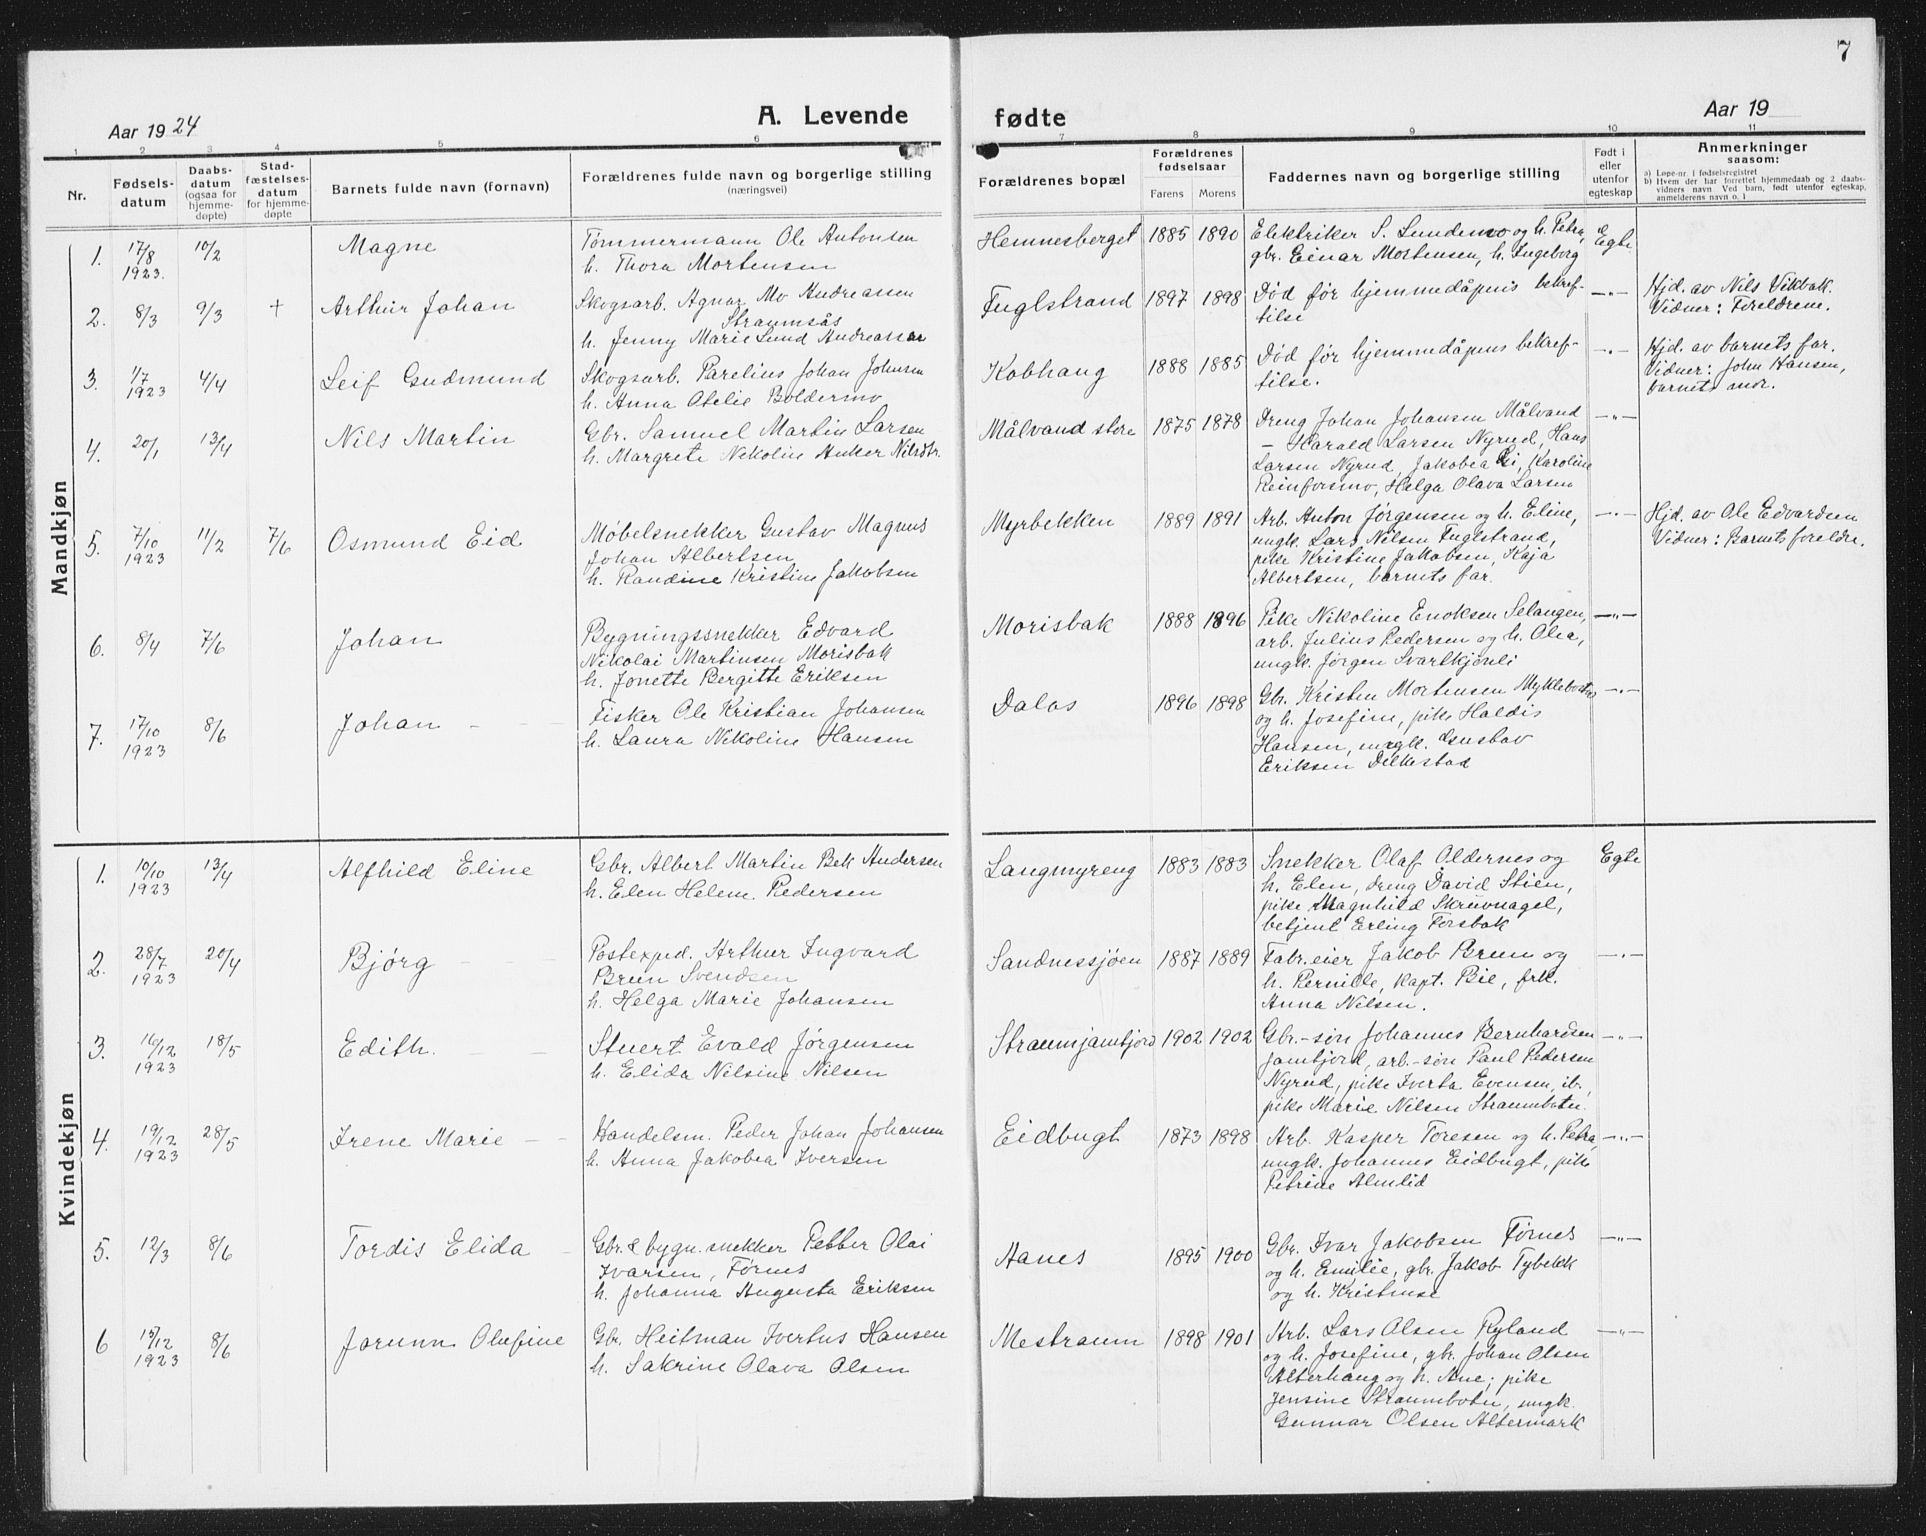 7
Aar 1924
A. Levende
fødte
Aar 19
1 2 3 4 5 6 7 8 9 10 11
Nr.
Fødsels-
datum
Daabs-
datum
(ogsaa for
hjemme-
døpte)
Stad-
fæstelses-
datum
for hjemme-
døpte
Barnets fulde navn (fornavn)
Forældrenes fulde navn og borgerlige stilling
(næringsvei)
Forældrenes bopæl
Forældrenes
fødselsaar
Farens Morens
Faddernes navn og borgerlige stilling
Født i
eller
utenfor
egteskap
Anmerkninger
saasom:
a) Løpe-nr. i fødselsregistret
b) Hvem der har forrettet hjemmedaab og 2 daabs-
vidners navn Ved barn, født utenfor egteskap,
anmelderens navn o. l
Mandkjøn
1. 17/8 1923. 10/2 Magne
Tømmermann Ole Antonsen
h. Thora Mortensen
Hemnesberget 1885 1890
Elektriker S. Lundemo og h. Petra,
gbr. Einar Mortensen, h. Ingeborg
Egte
2. 8/3 9/3 + Arthur Johan
Skogsarb. Agnar Mo Andreassen
Straumsås
h. Jenny Marie Lund Andreassen
Fuglstrand 1897 1898
Død før hjemmedåpens bekref-
tilse
—"—
Hjd. av Nils Vikbak.
Vidner: Foreldrene.
3. 1/7 1923 4/4 Leif Gudmund
Skogsarb. Parelius Johan Johnsen
h. Anna Otelie Boldermo
Kobhaug 1888 1885
Død før hjemmedåpens bekref-
tilse.
—"—
Hjd. av barnets far.
Vidner: John Hansen,
barnets mor.
4. 20/1 13/4 Nils Martin
Gbr. Samuel Martin Larsen
h. Margrete Nikoline Anker Nilsdtr.
Målvand store 1875 1878
Dreng Johan Johansen Målvand
— Harald Larsen Nyrud, Hans
Larsen Nyrud, Jakobea Li, Karoline
Reinforsmo, Helga Olava Larsen
—"—
5. 7/10 1923 11/2 7/6 Osmund Eid
Møbelsnekker Gustav Magnus
Johan Albertsen
h. Randine Kristine Jakobsen
Myrbekken 1889 1891
Arb. Anton Jørgensen og h. Eline,
ungk. Lars Nilsen Fuglstrand,
pike Kristine Jakobsen, Kaja
Albertsen, barnets far.
—"—
Hjd. av Ole Edvardsen
Vidner: Barnets foreldre.
6. 8/4 7/6 Johan
Bygningssnekker Edvard
Nikolai Martinsen Morisbak
h. Jonette Bergitte Eriksen
Morisbak 1888 1896
Pike Nikoline Enoksen Selangen,
arb. Julius Pedersen og h. Olea,
ungk. Jørgen Svartkjønli
—"—
7. 17/10 1923 8/6 Johan
Fisker Ole Kristian Johansen
h. Laura Nikoline Hansen
Dalos 1896 1898
Gbr. Kristen Mortensen
og h. Josefine, pike Haldis
Hansen, ungk. Gustav
Eriksen Dilkestad
—"—
Kvindekjøn
1. 10/10 1923 13/4 Alfhild Eline
Gbr. Albert Martin Bek Andersen
h. Elen Helene Pedersen
Langmyreng 1883 1883
Snekker Olaf Oldernes og
h. Elen, dreng David Stien,
pike Magnhild Skruvnagel,
betjent Erling Forsbak
Egte
2. 28/7 1923 20/4 Bjørg
Postexped. Arthur Ingvard
Brun Svendsen
h. Helga Marie Johansen
Sandnessjøen 1887 1889
Fabr.eier Jakob Brun og
h. Pernille, kapt. Bie, frk.
Anna Nilsen.
—"—
3. 16/12 1923 18/5 Edith.
Stuert Evald Jørgensen
h. Elida Nilsine Nilsen
Straumjamtfjord 1902 1902
Gbr.-søn Johannes Bernhardsen
Jamtfjord, arb.-søn Paul Pedersen
Nyrud, pike Iverta Evensen, ib.,
pike Marie Nilsen Straumboten.
—"—
4. 19/12 1923 28/5 Irene Marie
Handelsm. Peder Johan Johansen
h. Anna Jakobea Iversen
Eidbugt 1873 1898
Arb. Kasper Toresen og h. Petra,
ungk. Johannes Eidbugt, pike
Petrine Almlid
—"—
5. 12/3 8/6 Tordis Elida
Gbr. & bygn.snekker Petter Olai
Ivarsen,Førnes
h. Johanna Augusta Eriksen
Aanes 1895 1900
Gbr. Ivar Jakobsen Førnes
og h. Emilie, gbr. Jakob Tybekk
og h. Kristense
—"—
6 15/12 1923 8/6 Jorunn Olufine
Gbr. Heitman Ivertus Hansen
h. Sakrine Olava Olsen
Mestraum 1898 1901
Arb. Lars Olsen Ryland
og h. Josefine, gbr. Johan Olsen
Alterhaug og h. Ane; pike
Jensine Straumboten, ungk.
Gunnar Olsen Altermark
—"—